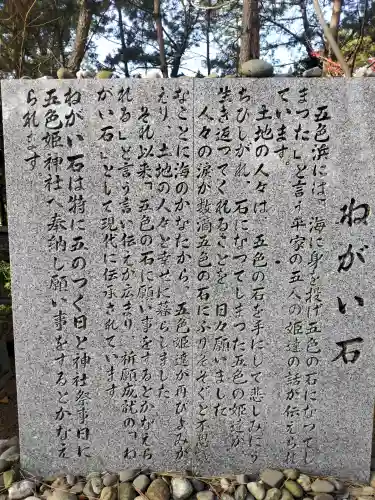 ねがい石
五色浜には、海に身を投げ五色の石になつてし
まつた」と言う平家の五人の姫達の話が伝えられ
ています。
土地の人々は 五色の石を手にして悲しみにう
ちひしがれ、石になつてしまつた五色の姫達が、
生き返つてくれることを、日々願いました
人々の涙が数滴五色の石にふりそそぐと不思
なことに海のかなたから 五色姫達が再びよみが
えり、土地の人々と幸せに暮らしました
それ以来「五色の石に願い事をするとかなえら
れる」と言う言い伝えが広まり、祈願成就の「ね
がい石」として現代に伝承されています。
ねがい石は特に五のつく日と神社祭事日に
五色姫神社へ奉納し願い事をするとかなえ
られます